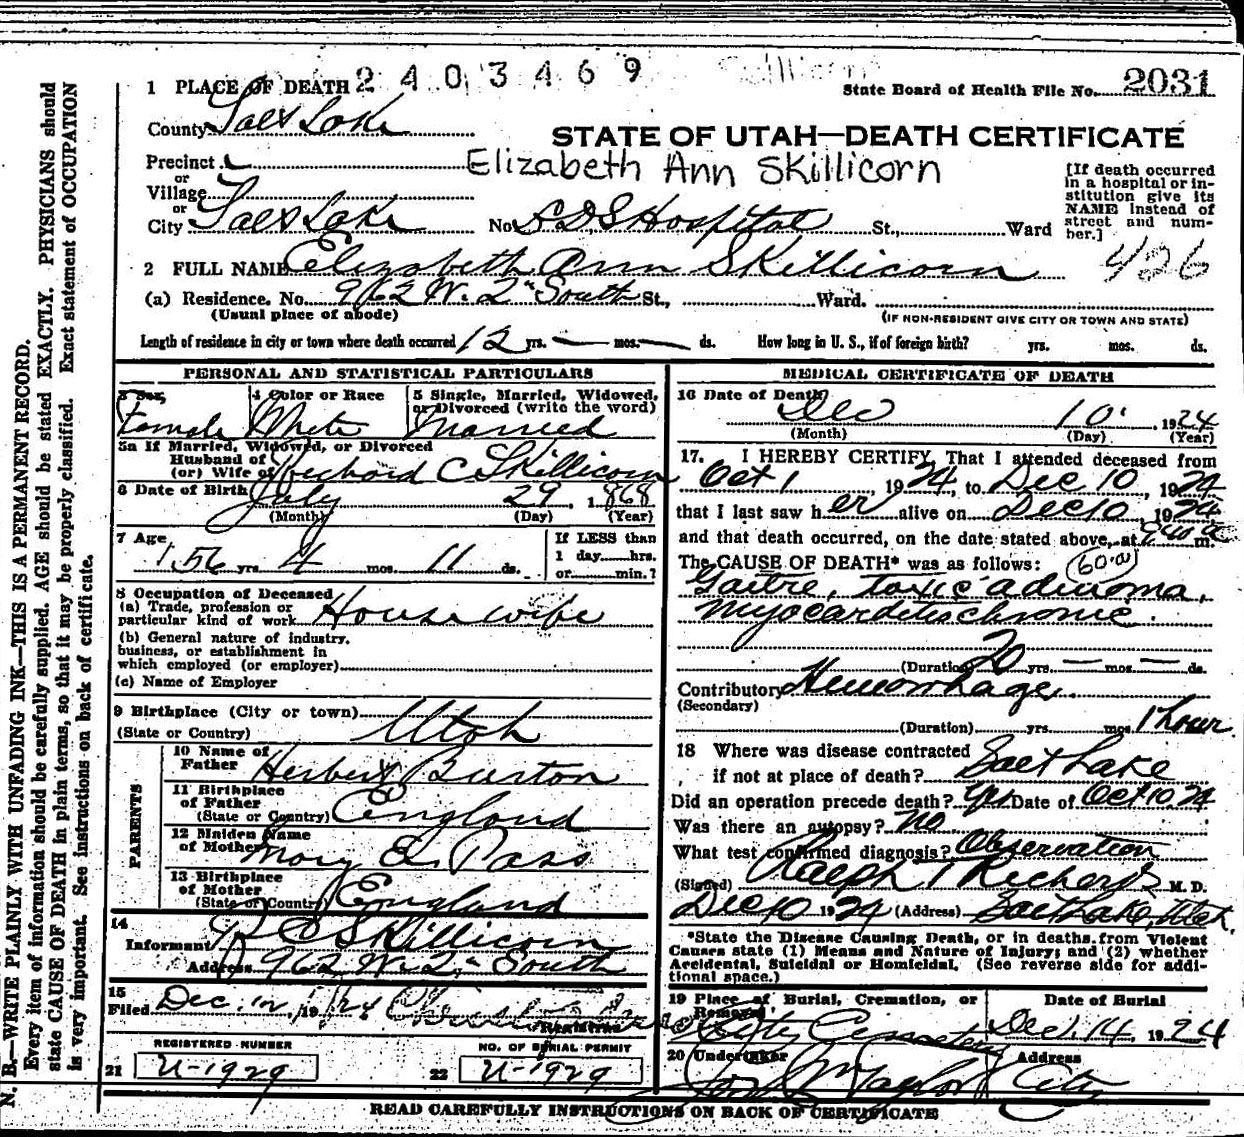 2 4 0 3 4 6 9 Skillicorn
1 PLACE OF DEATH
State Board of Health File No. 2031
County Salt Lake
STATE OF UTAH—DEATH CERTIFICATE
Precinct
Elizabeth Ann Skillicorn
or
Village
or
City Salt Lake No. L.D.S Hospital St., Ward
[If death occurred in a hospital or in-
stitution give its
NAME instead of
street and num-
ber.]
426
2 FULL NAME Elizabeth Ann Skillicorn
(a) Residence. No. 962 W. 2" South St., Ward.
(Usual place of abode) (IF NON-RESIDENT GIVE CITY OR TOWN AND STATE)
Length of residence in city or town where death occurred 12 yrs. — mos. — ds. How long in U. S., if of foreign birth? yrs. mos. ds.
PERSONAL AND STATISTICAL PARTICULARS
3 Sex, 4 Color or Race 5 Single, Married, Widowed,
or Divorced (write the word)
Female White Married
5a If Married, Widowed, or Divorced
Husband of
(or) Wife of Richard C Skillicorn
6 Date of Birth July 29, 1868
(Month) (Day) (Year)
7 Age If LESS than
56 yrs. 4 mos. 11 ds. 1 day hrs.
or min.?
8 Occupation of Deceased
(a) Trade, profession or
particular kind of work Housewife
(b) General nature of industry,
business, or establishment in
which employed (or employer)
(c) Name of Employer
9 Birthplace (City or town)
(State or Country) Utah
PARENTS
10 Name of
Father Herbert Burton
11 Birthplace
of Father
(State or Country) England
12 Maiden Name
of Mother Mary E. Pass
13 Birthplace
of Mother
(State or Country) England
14
Informant R C Skillicorn
Address 962 W. 2" South
15
Filed Dec. 12, 1924
Registrar
REGISTERED NUMBER NO. OF BURIAL PERMIT
21 U-1929 22 U-1929
MEDICAL CERTIFICATE OF DEATH
16 Date of Death
Dec 10, 1924
(Month) (Day) (Year)
17. I HEREBY CERTIFY, That I attended deceased from
Oct 1, 1924, to Dec 10, 1924
that I last saw her alive on Dec 10, 1924
and that death occurred, on the date stated above, at 940 a m.
The CAUSE OF DEATH* was as follows: 60.a
Goitre, toxic adenoma,
Myocarditis chronic.
(Duration) 20 yrs. — mos. — ds.
Contributory Hemorrhage.
(Secondary)
(Duration) yrs. mos. 1 hour.
18 Where was disease contracted
if not at place of death? Salt Lake
Did an operation precede death? Yes Date of Oct 10 24
Was there an autopsy? No
What test confirmed diagnosis? Observation
(Signed) Ralph T Richards M. D.
Dec 10 1924 (Address) Salt Lake, Utah.
*State the Disease Causing Death, or in deaths from Violent
Causes state (1) Means and Nature of Injury; and (2) whether
Accidental, Suicidal or Homicidal. (See reverse side for addi-
tional space.)
19 Place of Burial, Cremation, or
Removal Date of Burial
City Cemetery Dec. 14, 1924
20 Undertaker Address
Taylor City
READ CAREFULLY INSTRUCTIONS ON BACK OF CERTIFICATE
N. B.—WRITE PLAINLY WITH UNFADING INK—THIS IS A PERMANENT RECORD.
Every item of information should be carefully supplied. AGE should be stated EXACTLY. PHYSICIANS should
state CAUSE OF DEATH in plain terms, so that it may be properly classified. Exact statement of OCCUPATION
is very important. See instructions on back of certificate.